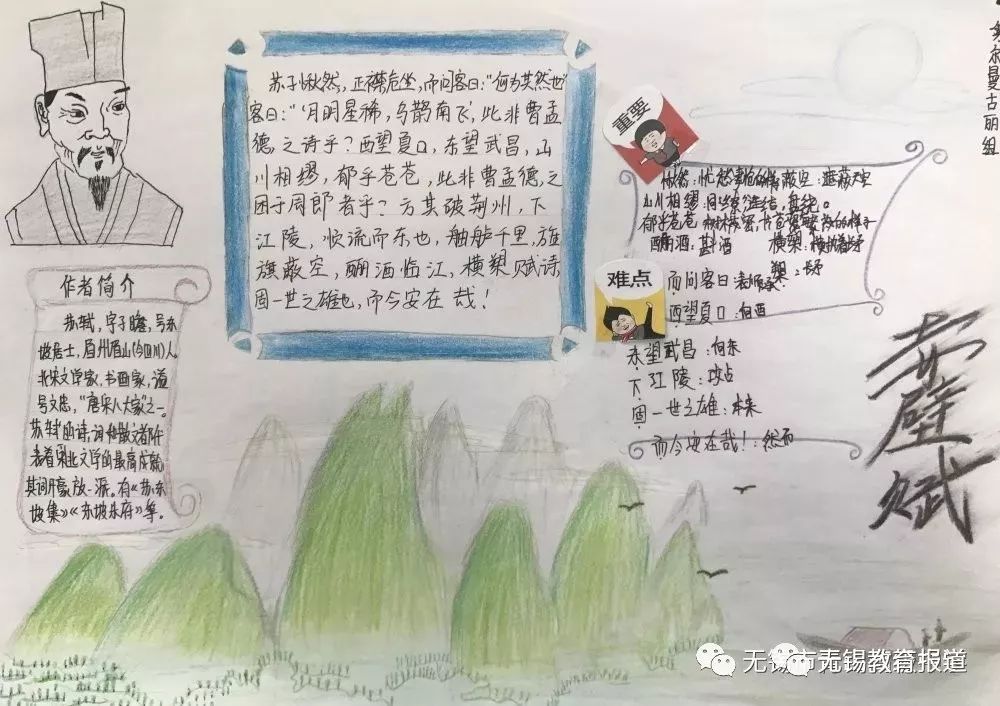 苏子愀然，正襟危坐，而问客曰："何为其然也"
客曰："'月明星稀，乌鹊南飞'，此非曹孟
德之诗乎？西望夏口，东望武昌，山
川相缪，郁乎苍苍，此非曹孟德之
困于周郎者乎？方其破荆州，下
江陵，顺流而东也，舳舻千里，旌
旗蔽空，酾酒临江，横槊赋诗，
固一世之雄也，而今安在哉！
作者简介
苏轼，字子瞻，号东
坡居士，眉州眉山(今四川)人
北宋文学家，书画家，谥
号文忠，"唐宋八大家"之一。
苏轼的诗，词和散文都代
表着北宋文学的最高成就
其词开豪放一派。有《苏东
坡集》《东坡乐府》等。
重要
愀然：忧愁 蔽空：遮蔽天空
山川相缪：盘绕。
郁乎苍苍 的样子
酾酒：斟酒 横槊：
槊：长矛
难点
而问客曰
西望夏口：向西
东望武昌：向东
下江陵：攻占
固一世之雄：本来
而今安在哉！：然而
赤壁赋
尔曼古丽组
无锡市
无锡教育报道